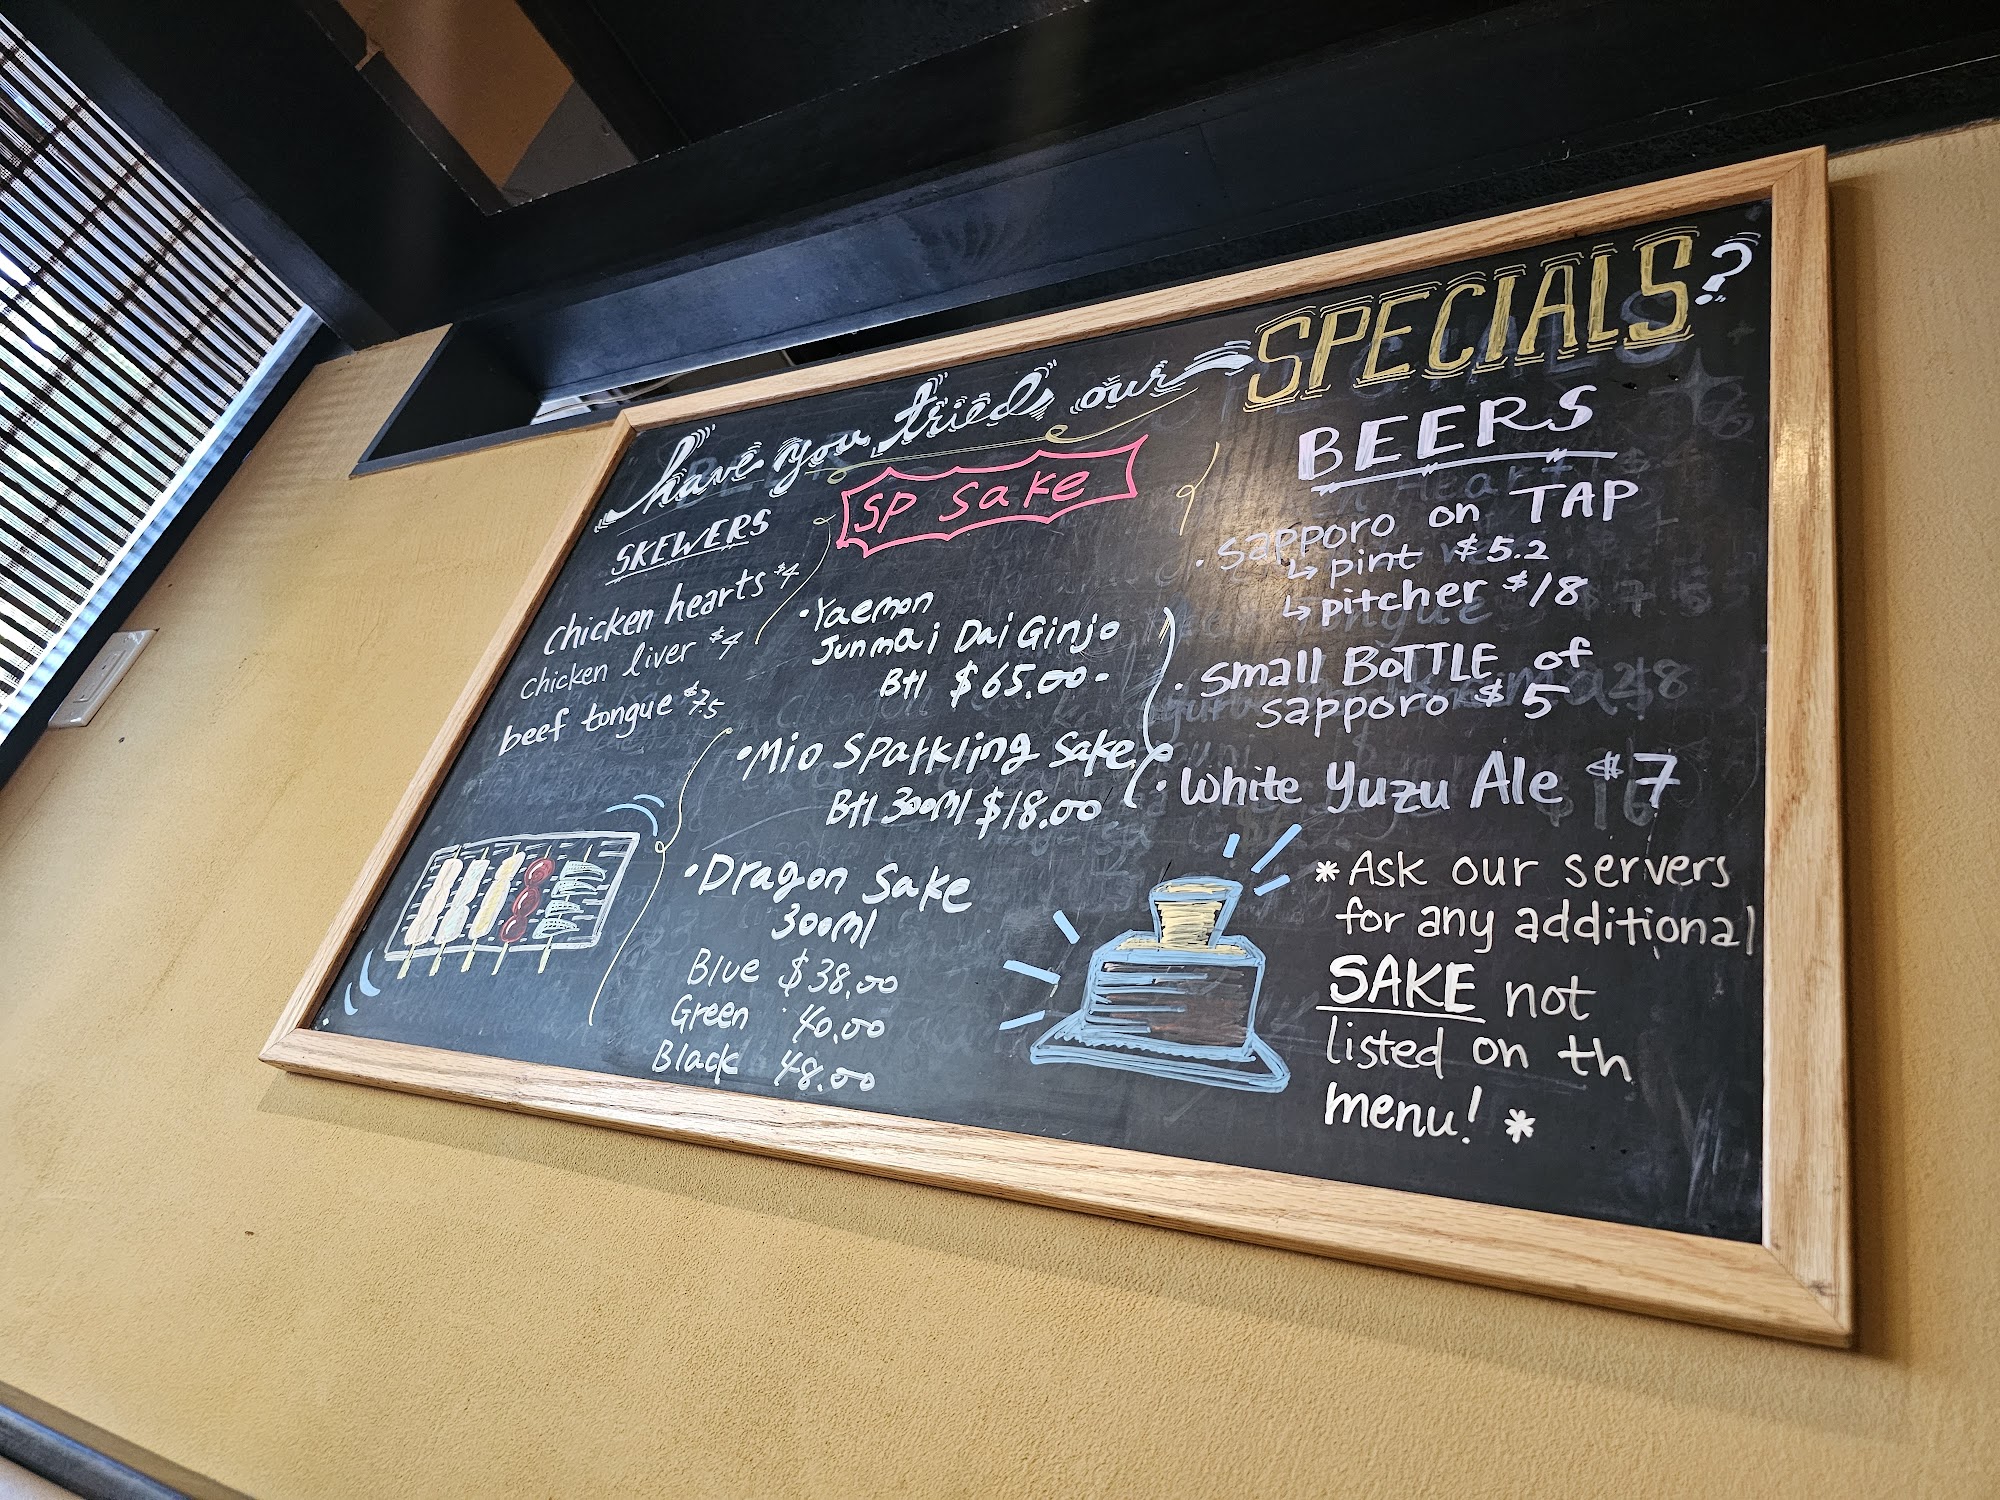 have you tried our SPECIALS?
SKEWERS
chicken hearts $4
chicken liver $4
beef tongue $7.5
SP Sake
• Yaemon
Junmai Dai Ginjo
Btl $65.00-
• Mio Sparkling Sake
Btl 300ml $18.00
• Dragon Sake
300ml
Blue $38.00
Green 40.00
Black 48.00
BEERS
• Sapporo on TAP
↳ pint $5.2
↳ pitcher $18
• Small BOTTLE of
Sapporo $5
• White Yuzu Ale $7
* Ask our servers
for any additional
SAKE not
listed on th
menu! *